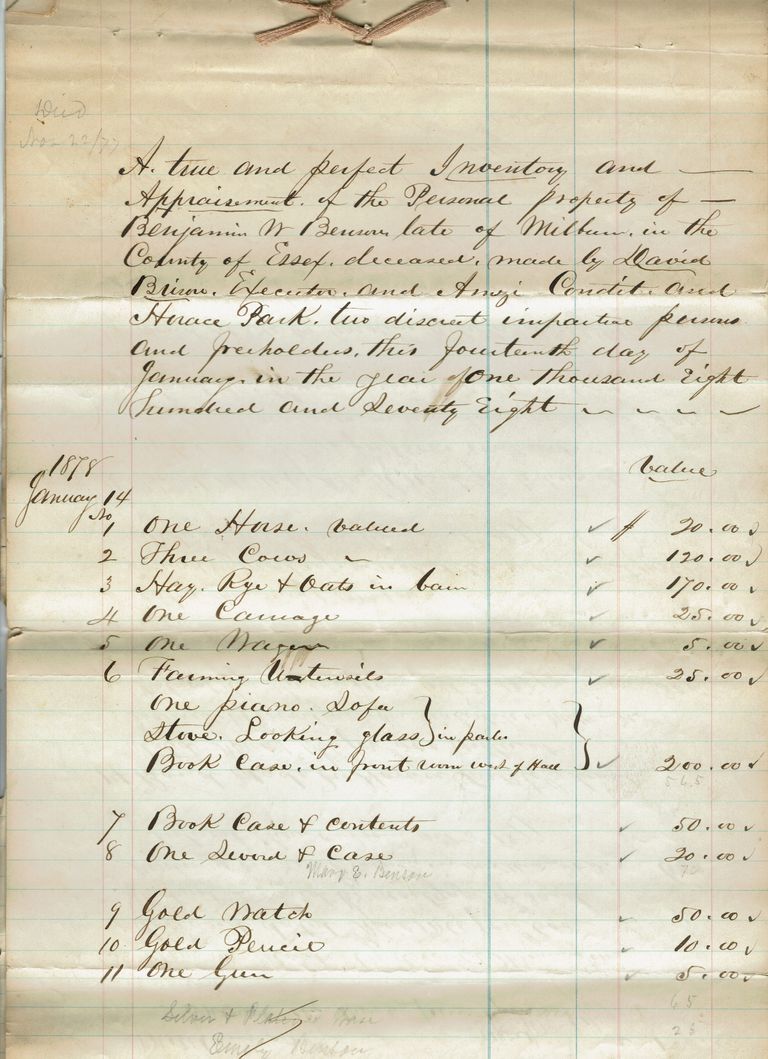 Died
Nov 22/77
A true and perfect Inventory and
Appraisement of the Personal Property of
Benjamin W Benson, late of Milburn, in the
County of Essex, deceased, made by David
Executor, and Amzi Condit and
Horace Park, two discreet impartial persons
and freeholders, this fourteenth day of
January, in the year of One Thousand Eight
Hundred and Seventy Eight
1878
January 14
Value
No
1 One Horse. Valued $ 20.00
2 Three Cows 120.00
3 Hay. Rye & Oats in barn 170.00
4 One Carriage 25.00
5 One Wagon 5.00
6 Farming Utensils 25.00
One piano. Sofa
Stove. Looking glass } in parlor
Book Case. in front room west of Hall 200.00
565
7 Book Case & contents 50.00
8 One Sword & Case 20.00
Mary E. Benson 70
9 Gold Watch 50.00
10 Gold Pencil 10.00
11 One Gun 5.00
65
Silver &
25
Emily Benson